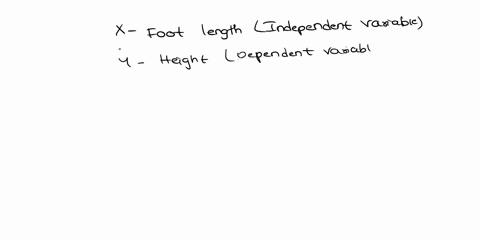 X - Foot length (Independent variable)
Y - Height (Dependent variabl